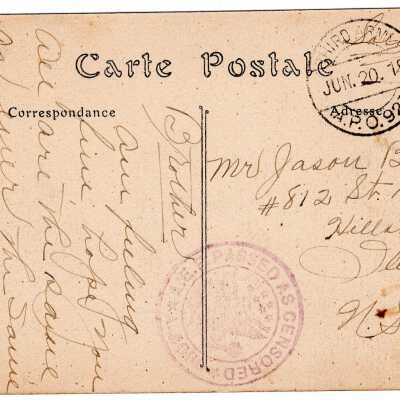 Carte Postale
Correspondance
Adresse
JUN. 20. 19
A.P.O. 92
Brother
am feeling
fine hope you
all are the same
the same
Mr Jason B
#812 St.
Hills
PASSED AS CENSORED
A.E.F.